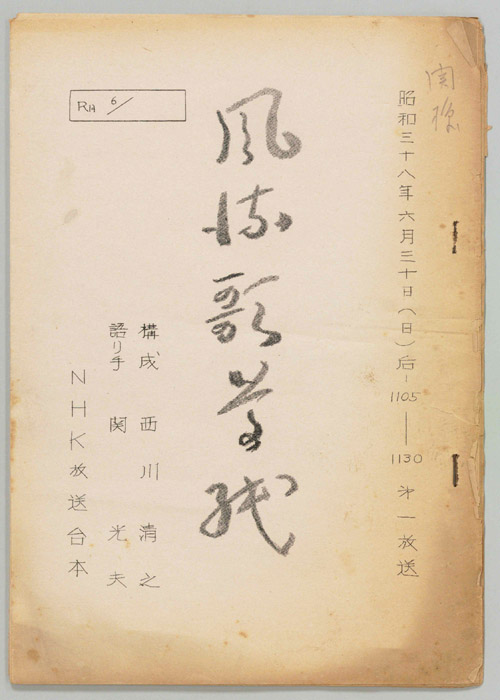 関様
昭和三十八年六月三十日(日)后-1105―1130 㐧一放送
風流歌草紙
RH 6/
構成 西川清之
語り手 関光夫
NHK放送台本